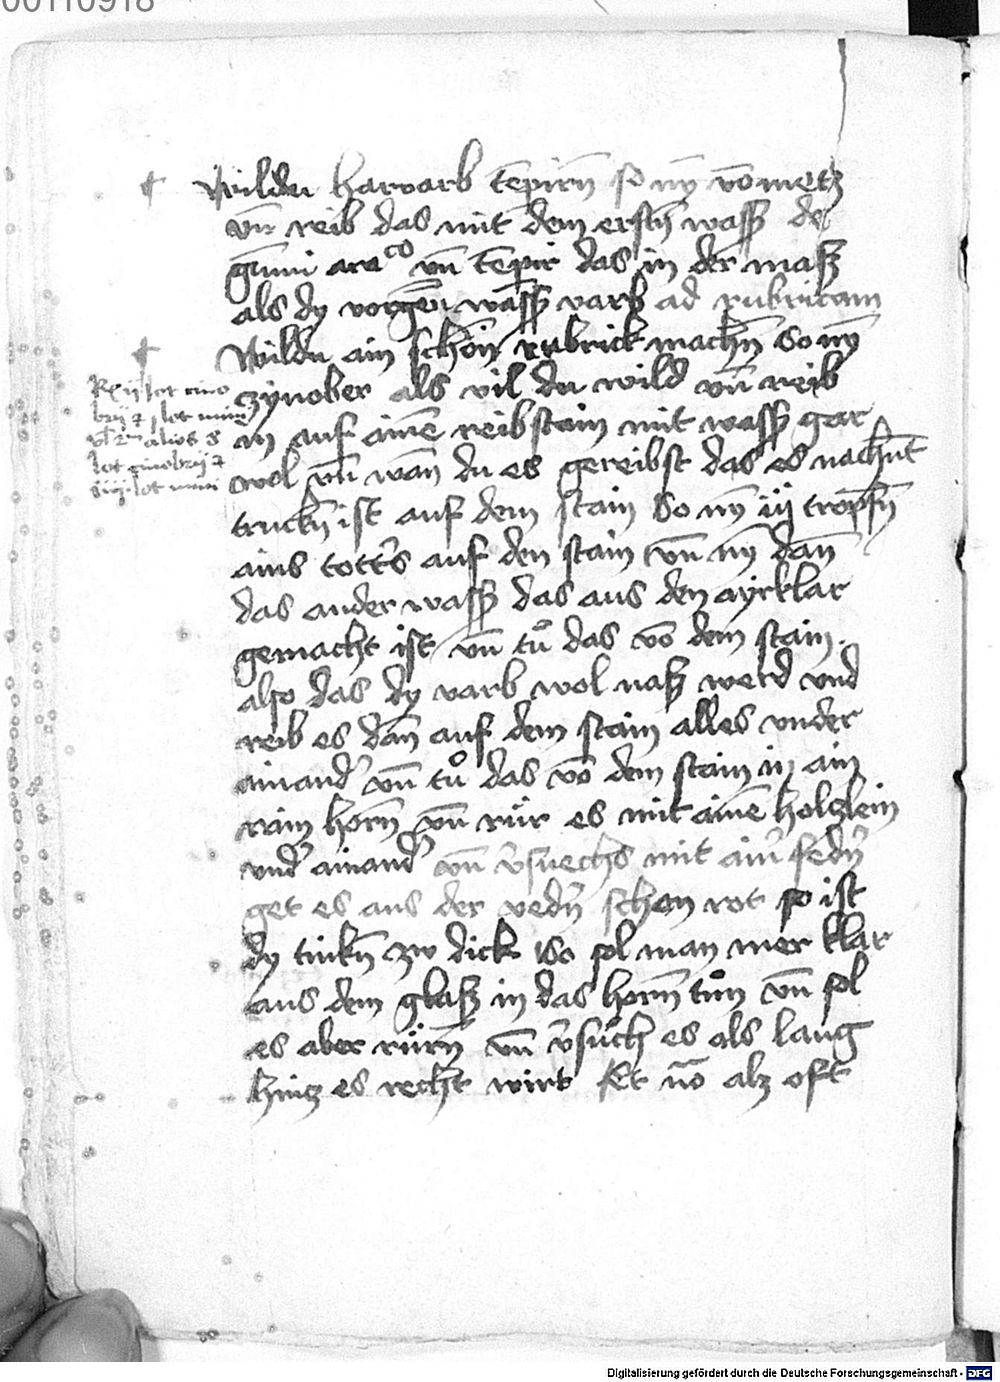 00110918
Wildu harvarb tempirn so nym vō metz
vn̄ reib das mit dem ersten wasß de
gum̄i ara co vn̄ temp̄ir das in der maß
als dy vorgen̄ wasß varb ad rubricam
Wildu ain schön rubrick machn̄ So nym̄
zynober als vil du wild vn̄ reib
in auf aine͞ reibstain mit wasß gar
wol vn̄ wan̄ du es gereibst das es nachn̄t
truckn̄ ist auf dem stain So nym̄ iij tropfn̄
ains totters auf den stain vn̄ nym̄ dan̄
das ander wasß das aus den ayrklar
gemacht ist vn̄ tů das vō dem stain
also das dy varb wol naß werd vnd
reib es dan̄ auf dem stain alles vnder
ainand' vn̄ tů das vō dem stain in ain
rain horn̄ vn̄ rür es mit aine͞ holzlein
vnd' ainand' vn̄ v'suechs mit ain' fedn̄
get es aus der vedn̄ schon rot so ist
dy tinkn̄ zw dick So sol man mer klar
aus dem glaß in das horn̄ tůn vn̄ sol
es aber rürn̄ vn̄ v'sůch es als lang
hinz es recht wirt Et nō alz oft
lot cino
brij lot minij
alios
lot cinobrij
iiij lot minij
Digitalisierung gefördert durch die Deutsche Forschungsgemeinschaft - DFG